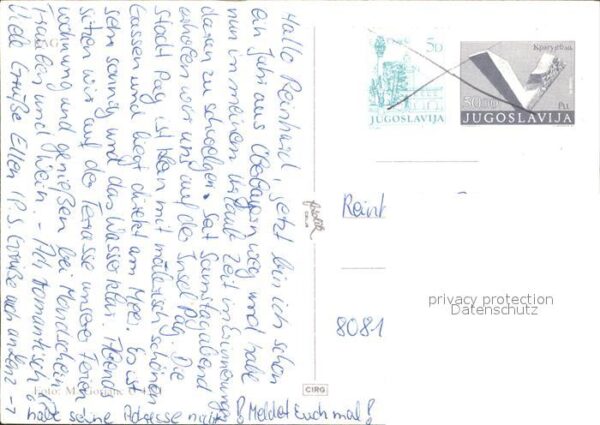 Hallo Reinhard, jetzt bin ich schon
ein Jahr aus Oberbayern weg und habe
nun in meinem Urlaub Zeit in Erinnerungen
daran zu schwelgen. Seit Samstagabend
erholen wir uns auf der Insel Pag. Die
Stadt Pag ist klein mit malerisch schönen
Gassen und liegt direkt am Meer. Es ist
sehr sonnig und das Wasser klar. Abends
sitzen wir auf der Terrasse unserer Ferien
wohnung und genießen bei Mondschein
Trauben und Wein. - Ach romantisch!
Viele Grüße Ellen (P.S. Grüße an
habe seine Adresse nicht! Meldet Euch mal!
Foto:
CIRG
5D
JUGOSLAVIJA
Крагујевац
JUGOSLAVIJA
8081
privacy protection
Datenschutz